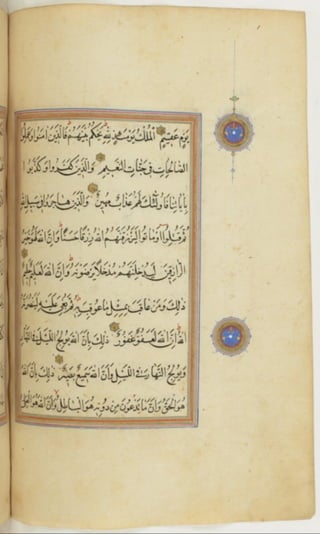 يوم عقيم الملك يومئذ لله يحكم بينهم فالذين آمنوا وعملوا
الصالحات في جنات النعيم والذين كفروا وكذبوا
بآياتنا فأولئك لهم عذاب مهين والذين هاجروا في سبيل الله
ثم قتلوا أو ماتوا ليرزقنهم الله رزقا حسنا وإن الله لهو خير
الرازقين ليدخلنهم مدخلا يرضونه وإن الله لعليم حليم
ذلك ومن عاقب بمثل ما عوقب به ثم بغي عليه لينصرنه
الله إن الله لعفو غفور ذلك بأن الله يولج الليل في النهار
ويولج النهار في الليل وأن الله سميع بصير ذلك بأن الله
هو الحق وأن ما يدعون من دونه هو الباطل وأن الله هو العلي